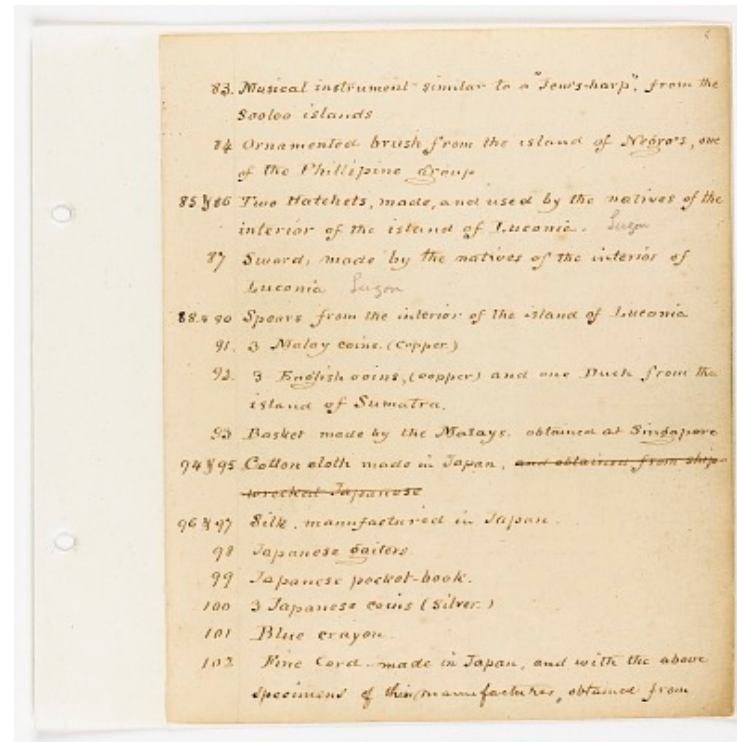 83. Musical instrument similar to a "Jews-harp", from the
Sooloo islands
84 Ornamented brush from the island of Negros, one
of the Phillipine Group
85 & 86 Two Hatchets, made, and used by the natives of the
interior of the island of Luconia. Luzon
87 Sword, made by the natives of the interior of
Luconia Luzon
88. & 90 Spears from the interior of the island of Luconia
91. 3 Malay coins. (Copper.)
92. 3 English coins, (copper) and one Duch from the
island of Sumatra.
93 Basket made by the Malays. obtained at Singapore
94 & 95 Cotton cloth made in Japan, and obtained from ship-
wrecked Japanese
96 & 97 Silk, manufactured in Japan.
98 Japanese gaiters.
99 Japanese pocket-book.
100 3 Japanese coins (Silver.)
101 Blue crayon.
102 Fine Cord made in Japan, and with the above
specimens of manufactures, obtained from